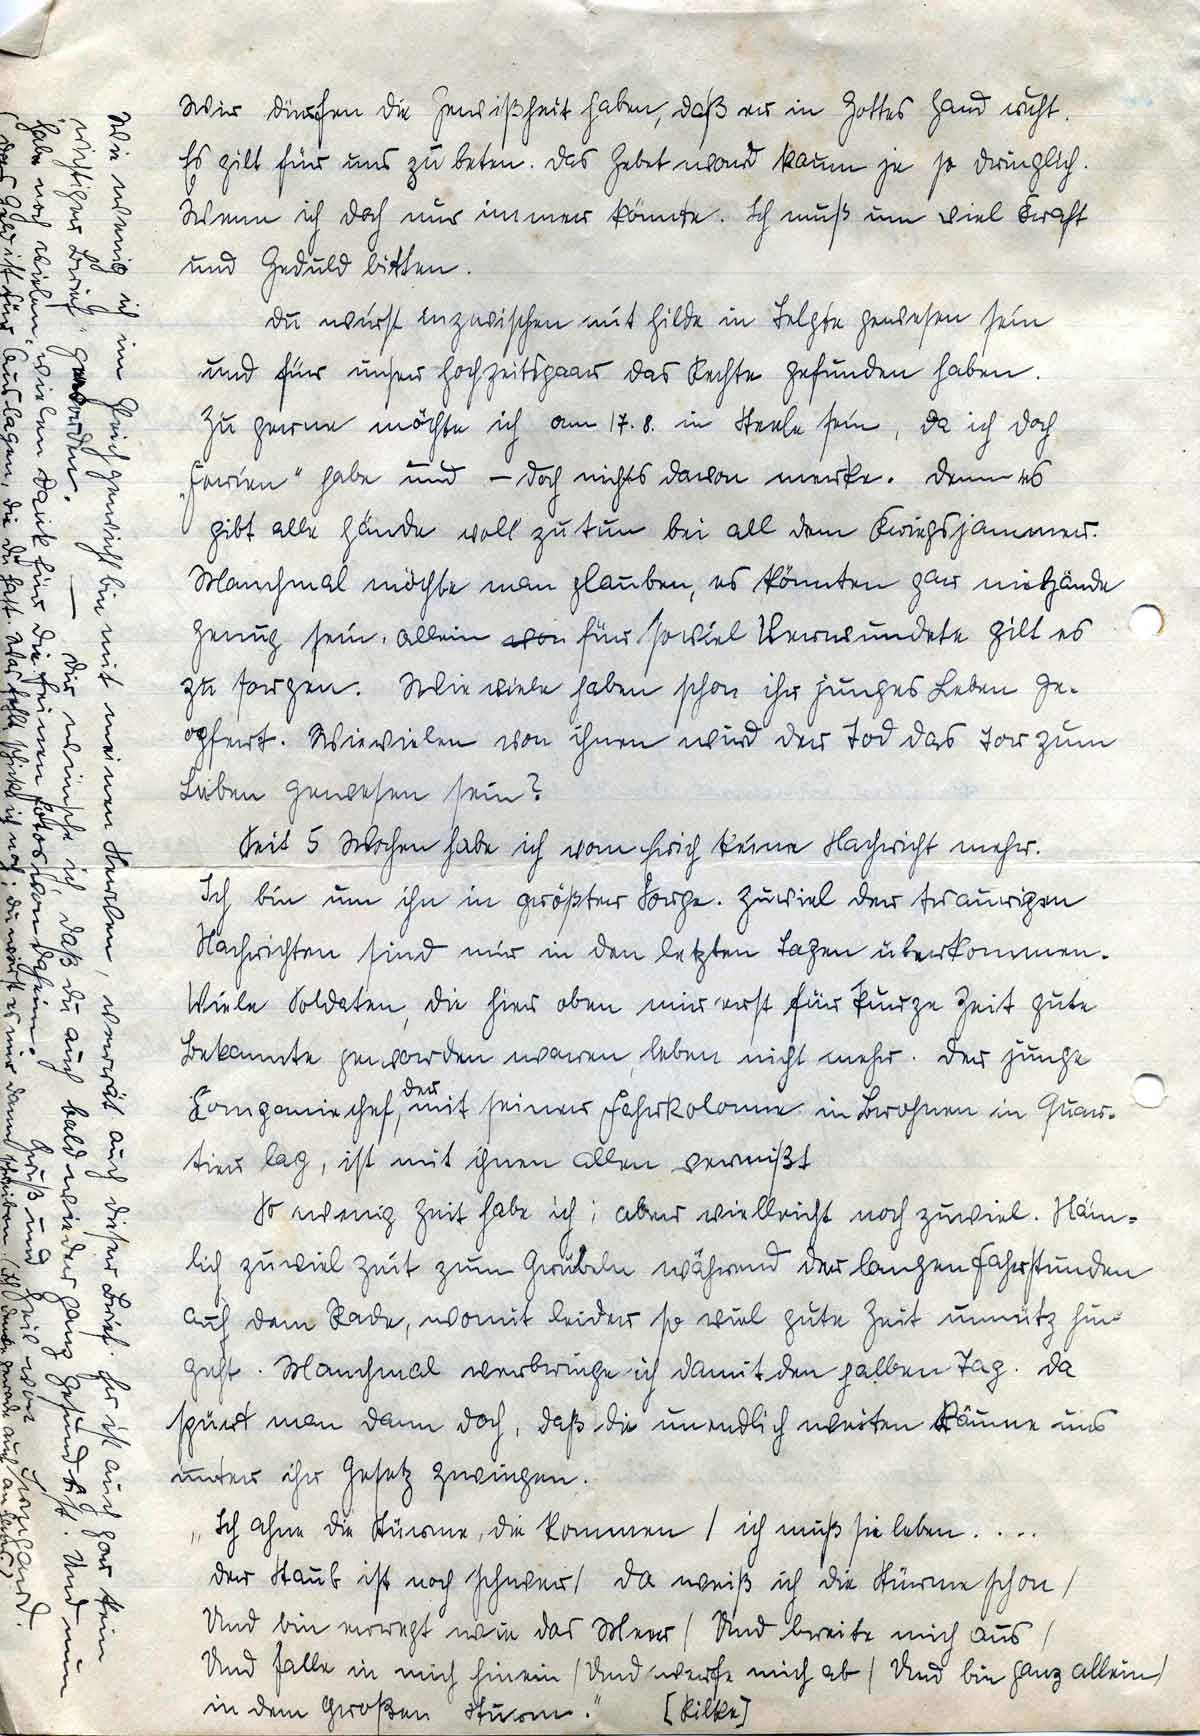 Wir dürfen die Gewißheit haben, daß er in Gottes Hand ruht.
Es gilt für uns zu beten. Das Gebet ward kaum je so dringlich.
Wenn ich doch nur immer könnte. Ich muß um viel Kraft
und Geduld bitten.
Du wirst inzwischen mit Hilde in Telgte gewesen sein
und für unser Hochzeitspaar das Rechte gefunden haben.
Zu gerne möchte ich am 17. 8. in Steele sein, da ich doch
„Ferien“ habe und – doch nichts davon merke. Denn es
gibt alle Hände voll zu tun bei all dem Kriegsjammer.
Manchmal möchte man glauben, es könnten gar nie Hände
genug sein, allein für soviel Verwundete gilt es
zu sorgen. Wie viele haben schon ihr junges Leben ge-
opfert. Wievielen von ihnen wird der Tod das Tor zum
Leben gewesen sein?
Seit 5 Wochen habe ich vom Erich keine Nachricht mehr.
Ich bin um ihn in größter Sorge. Zuviel der traurigen
Nachrichten sind mir in den letzten Tagen überkommen.
Viele Soldaten, die hier oben mir erst für kurze Zeit gute
Bekannte geworden waren, leben nicht mehr. Der junge
Kompaniechef, der mit seiner Fahrkolonne in Brohnen in Quar-
tier lag, ist mit ihnen allen vermißt
So wenig Zeit habe ich; aber vielleicht noch zuviel. Näm-
lich zuviel Zeit zum Grübeln während der langen Fahrstunden
auf dem Rade, womit leider so viel gute Zeit unnütz hin-
geht. Manchmal verbringe ich damit den halben Tag. Da
spürt man dann doch, daß die unendlich weiten Räume uns
unter ihr Gesetz zwingen.
„Ich ahne die Stürme, die kommen / ich muß sie leben. . . .
der Staub ist noch schwer / da weiß ich die Stürme schon /
Und bin erregt wie das Meer / Und breite mich aus /
Und falle in mich hinein / Und werfe mich ab / Und bin ganz allein /
in dem großen Sturm.“ [Rilke]
Wie wenig ich im Gleichgewicht bin mit meinen Nerven, verrät auch dieser Brief. Er ist auch gar kein
richtiger Brief geworden. — Dir wünsche ich, daß du auch bald wieder ganz gesund bist. Und nun
habe noch vielen, vielen Dank für die feinen Fotos von daheim. Gruß und Heil von Irmgard.
(Das Geld ist für Auslagen, die du hast. Was fehlt, schicke ich noch; du wirst es mir dann schreiben.